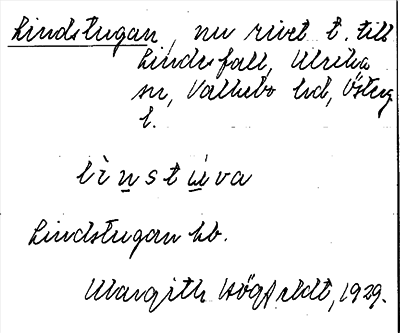 Lindstugan, nu rivet t. till
Lindesfall, Ulrika
sn, Valkebo hd, Österg
l.
lìnstùva
Lindstugan hb.
Margith Högfeldt, 1929.